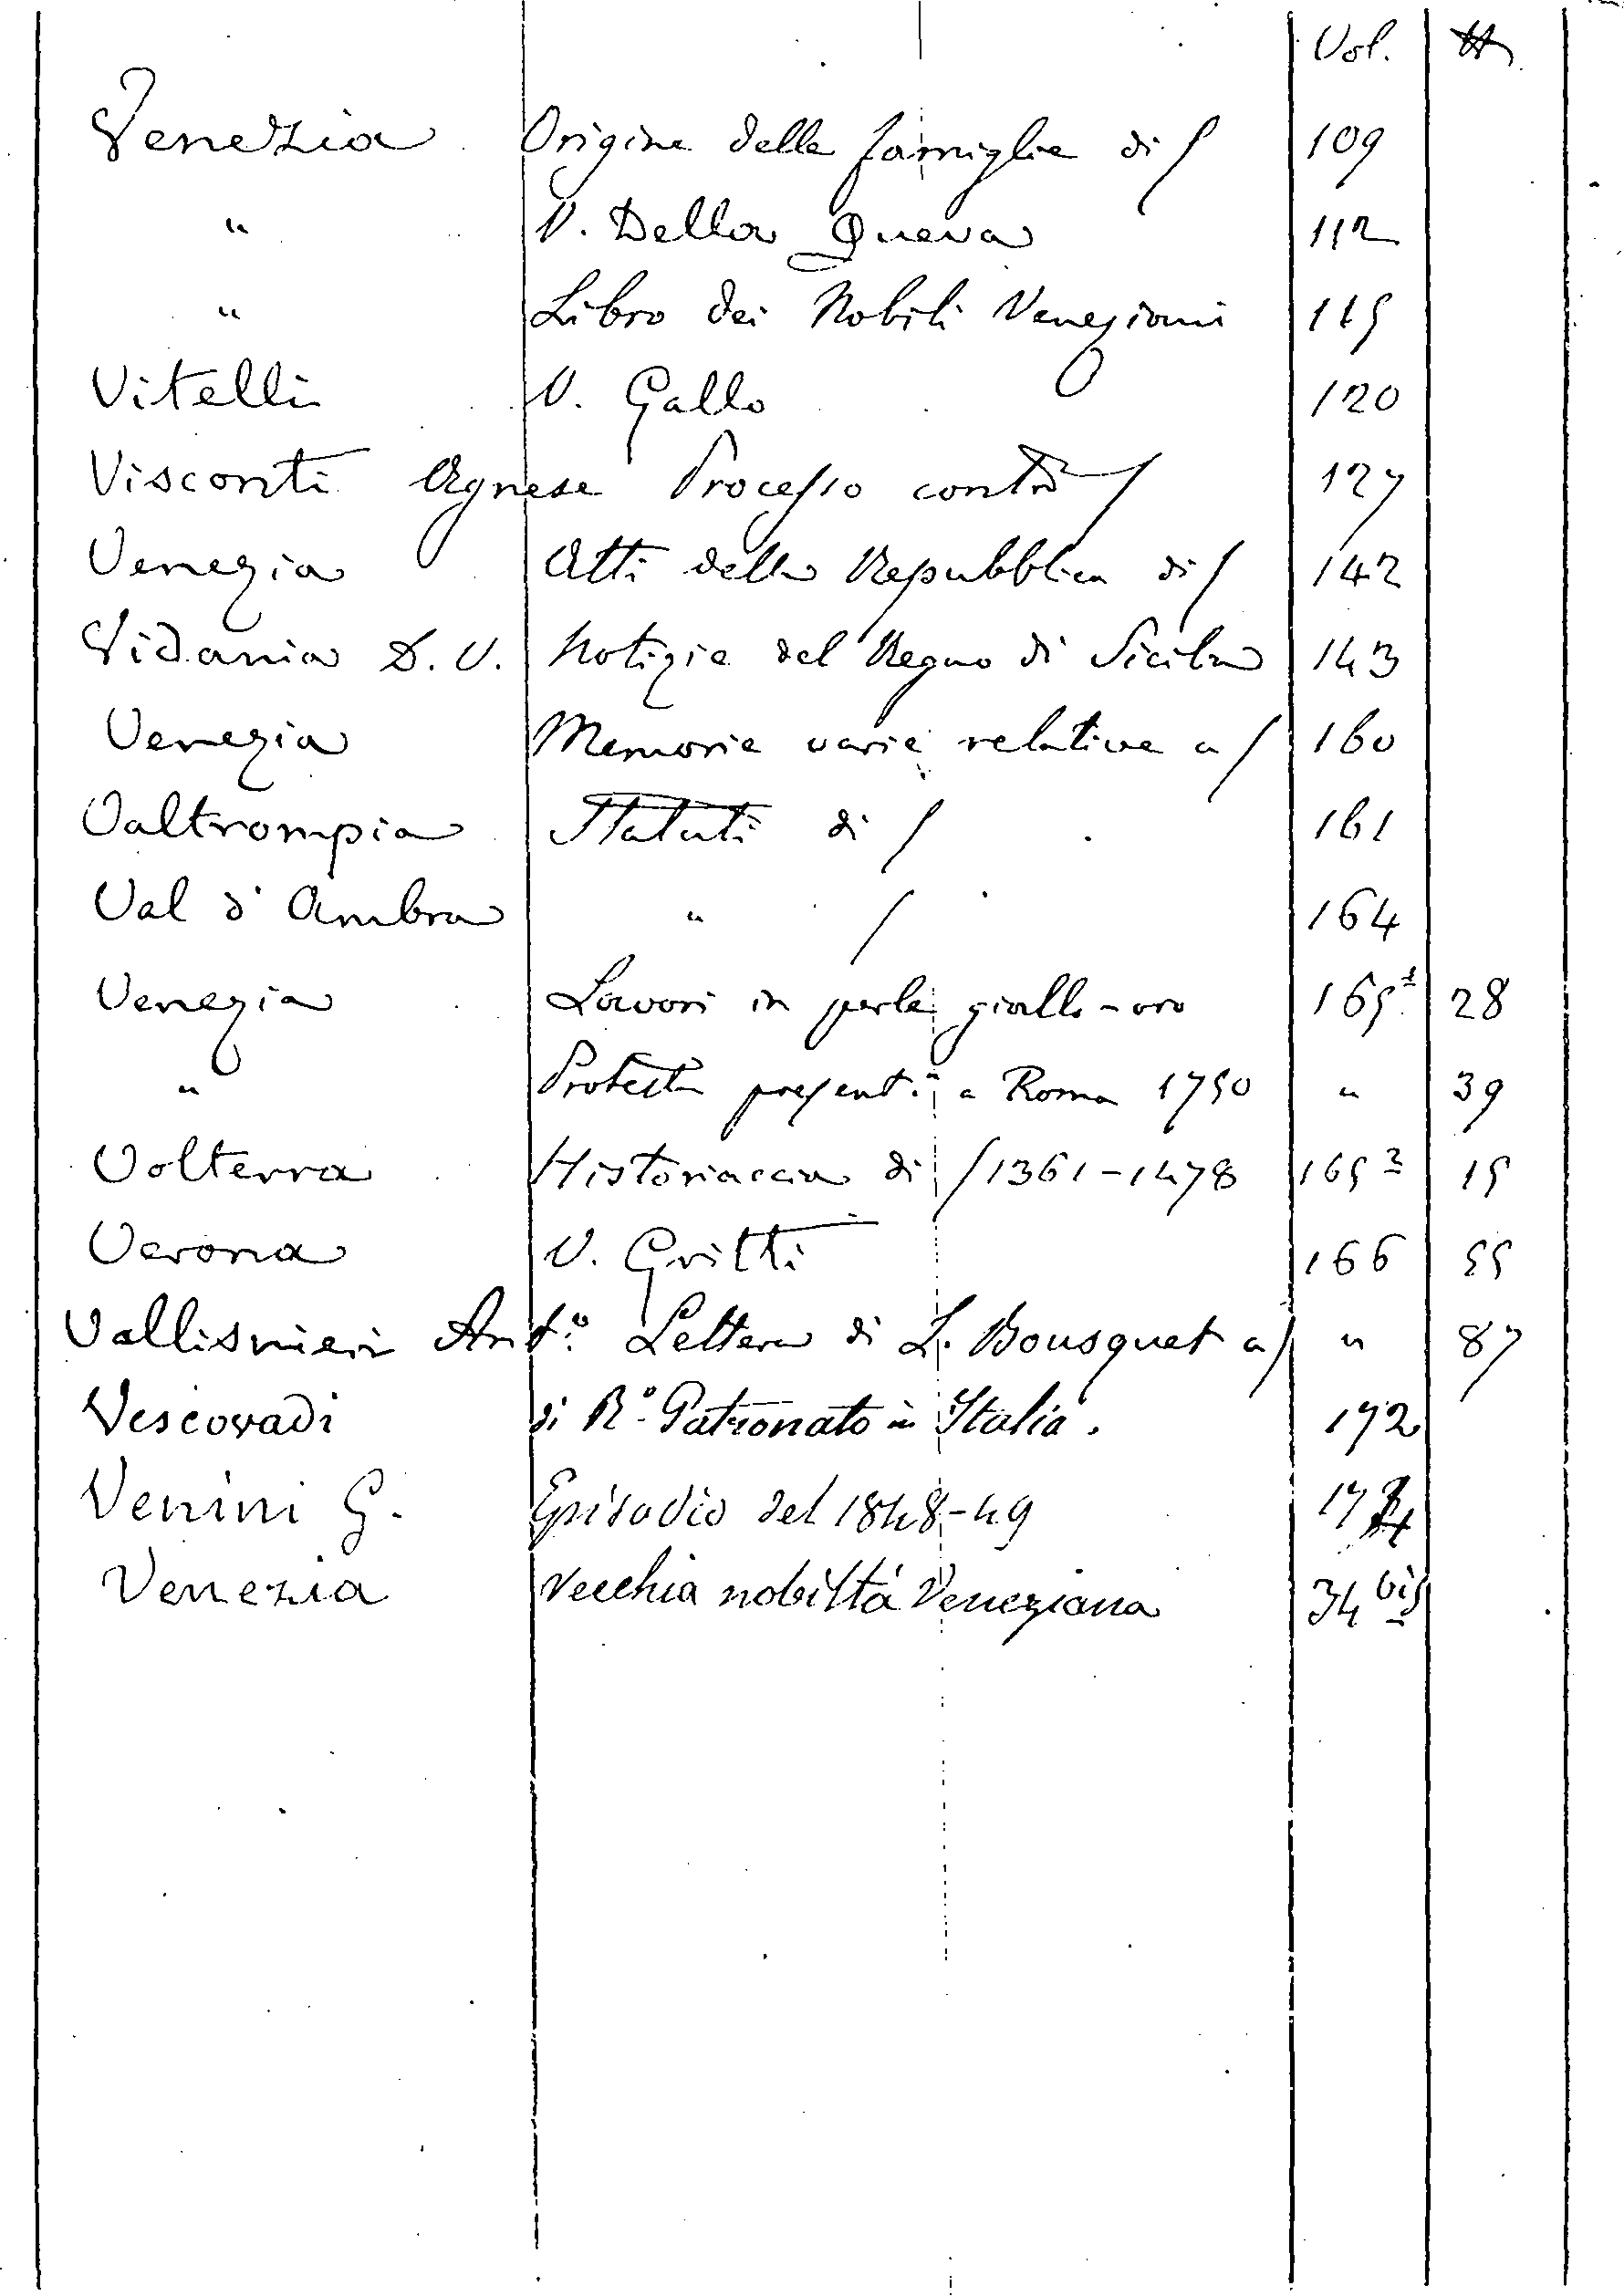 Vol.
Venezia Origine delle famiglie di / 109
" V. Della Queva 112
" Libro dei Nobili Veneziani 115
Vitelli V. Gallo 120
Visconti Agnese Processo contro / 127
Venezia Atti della Repubblica di / 142
Vidania D. V. Notizie del Regno di Sicilia 143
Venezia Memorie varie relative a / 160
Valtrompia Statuti di / 161
Val d'Ambra " / 164
Venezia Lavori in perle giallo-oro 165 1 28
" Protesta present: a Roma 1750 " 39
Volterra Historiaccia di / 1361-1478 165 2 15
Verona V. Gritti 166 55
Vallisnieri Ant.o Lettera di L. Bousquet a / " 87
Vescovadi di R.o Patronato in Italia. 172
Venini G. Episodio del 1848-49
Venezia Vecchia nobiltá Veneziana 34 bis